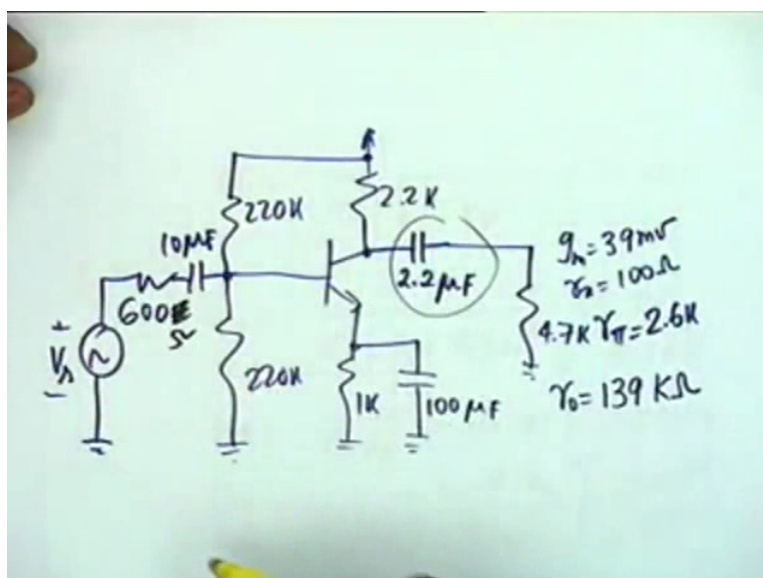 220K
2.2K
10µF
2.2µF
600Ω
+
Vs
-
220K
1K
100µF
4.7K
gm = 39m℧
rx = 100Ω
rπ = 2.6K
r0 = 139 KΩ